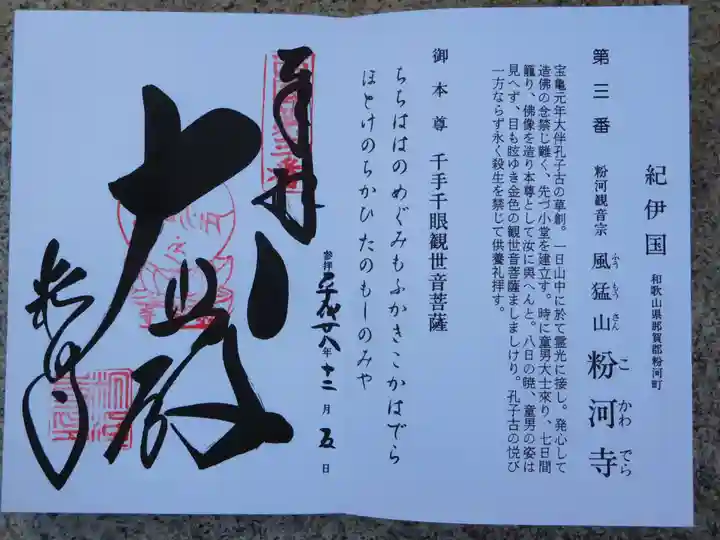 紀伊国 和歌山県那賀郡粉河町
第三番 粉河観音宗 風猛山 粉河寺
ふう もう さん こ かわ でら
宝亀元年大伴孔子古の草創。一日山中に於て霊光に接し。発心して
造佛の念禁じ難く、先づ小堂を建立す。時に童男大士來り、七日間
籠り、佛像を造り本尊として汝に與へんと。八日の暁、童男の姿は
見へず、目も眩ゆき金色の観世音菩薩ましましけり。孔子古の悦び
一方ならず永く殺生を禁じて供養礼拝す。
御本尊 千手千眼観世音菩薩
ちちははのめぐみもふかきこかはでら
ほとけのちかひたのもしのみや
参拝 平成廿八年十二月五日
奉拝
大悲殿
粉河寺